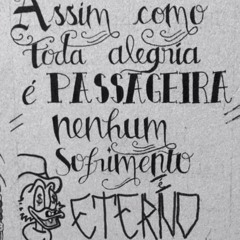 Assim como
toda alegria
é PASSAGEIRA
nenhum
Sofrimento
é
ETERNO